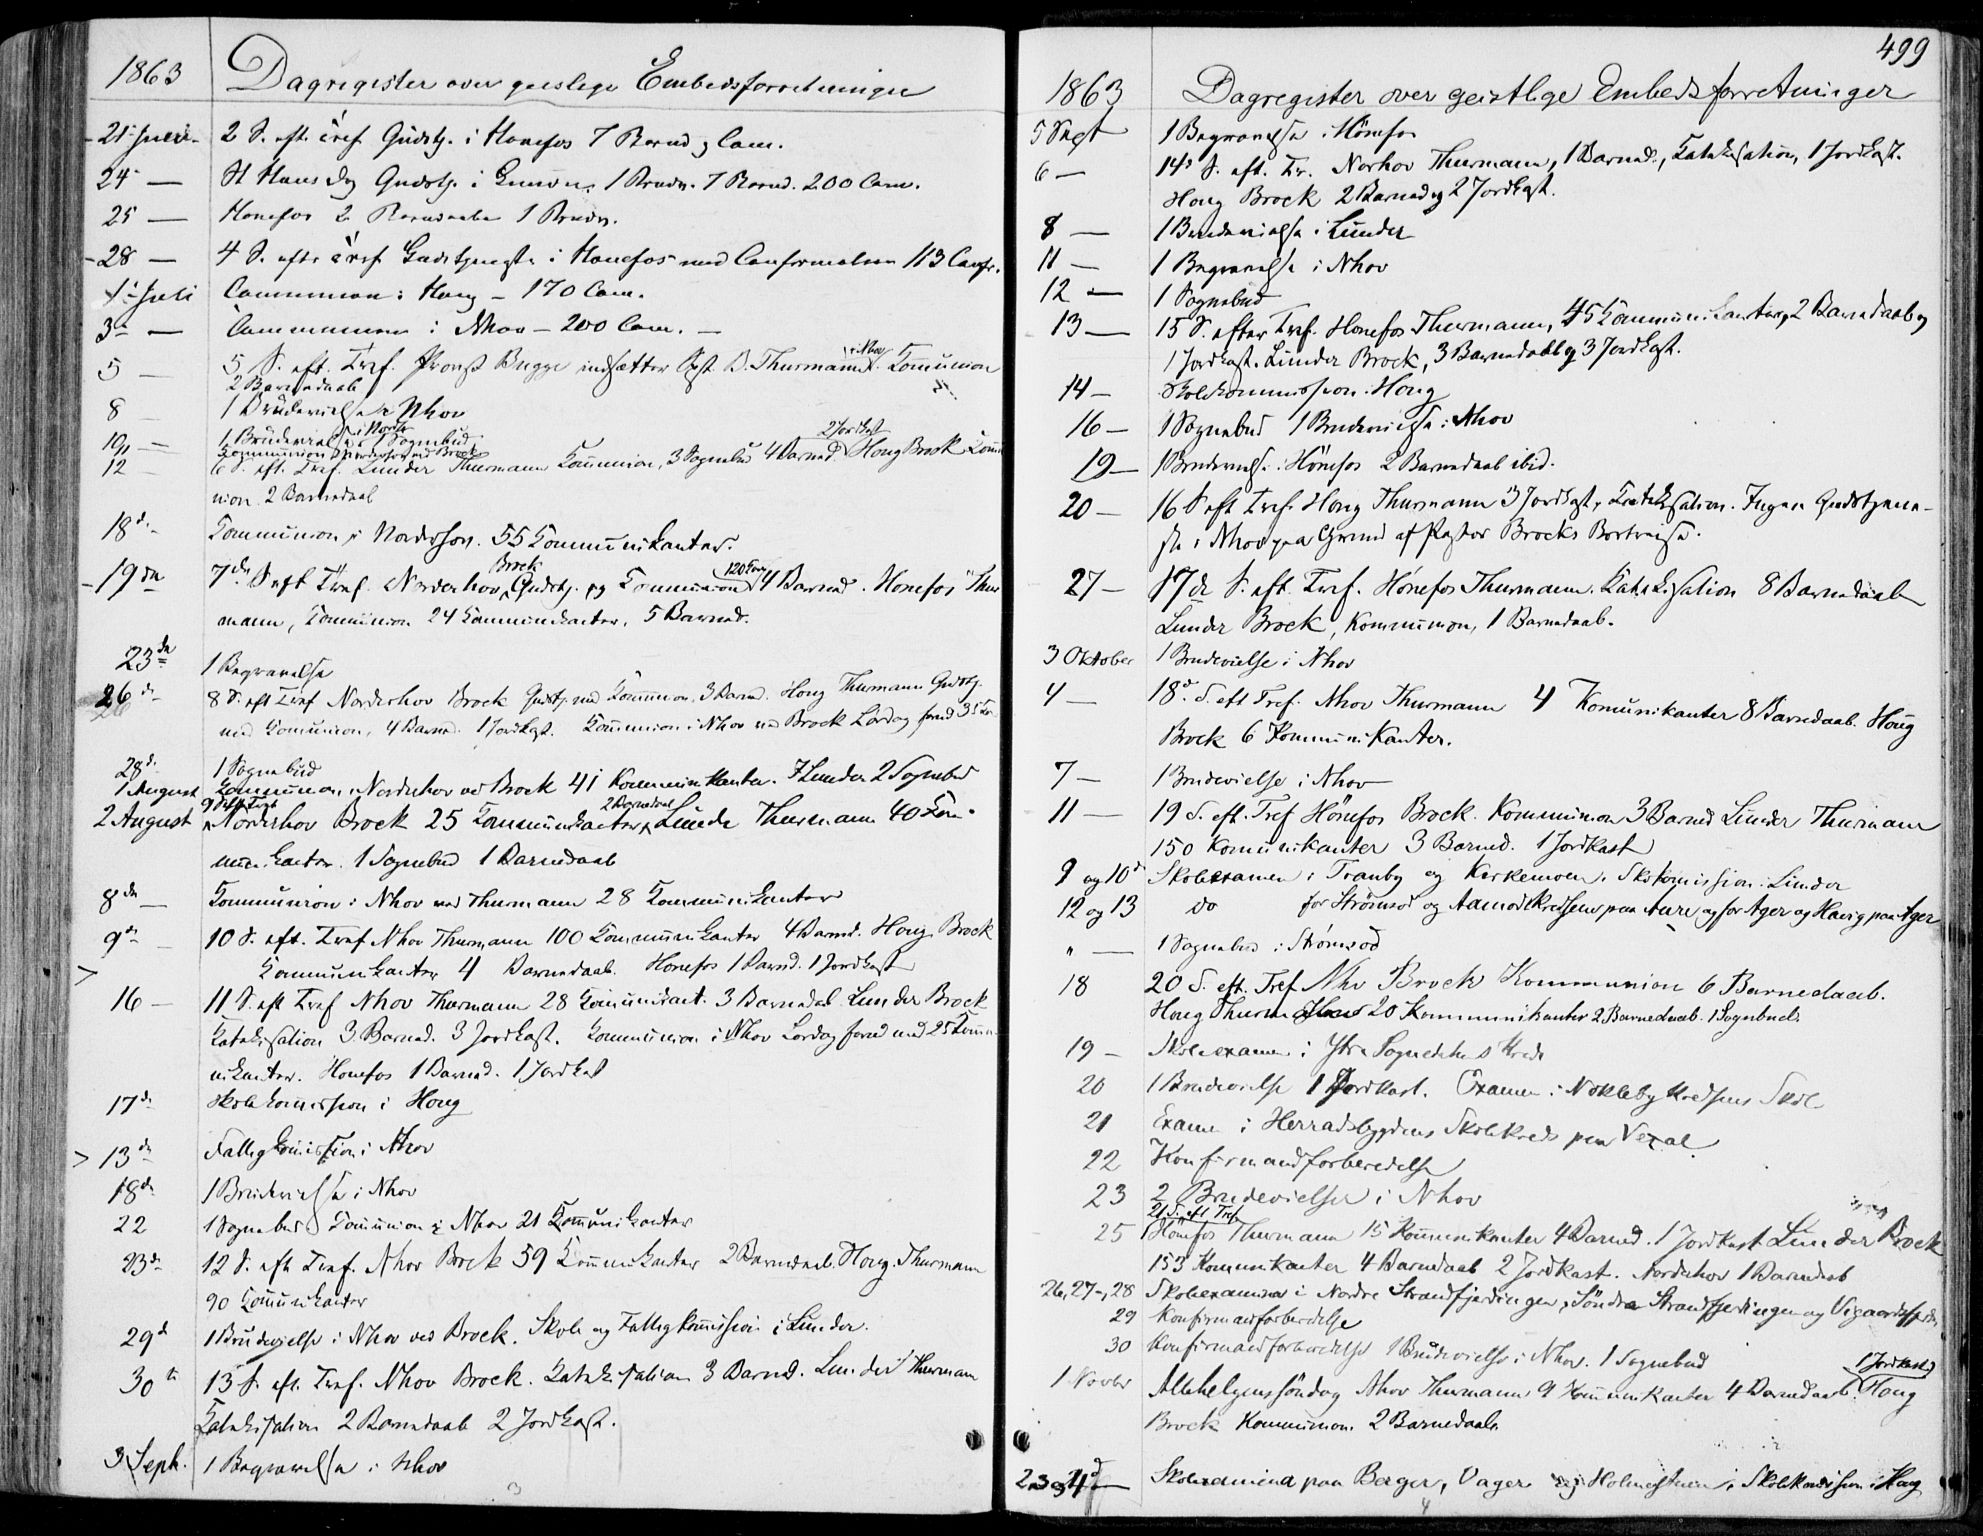 1863 Dagregister over geislige Embedsforretninger
21 Juni 2 S. eft. Tref Gudstj. i Honefos 7 Barnd og Com.
24 — St Hans Dag Gudstj. i 1 Brudv. 7 Barnd. 200 Com.
25 — Honefos 2 Barnedaab 1 Brudv.
28 — 4 S. efter Tref Gudstjeneste i Honefos med Confirmation 113 Confr.
1 Juli Communion i Houg – 170 Com.
3 — Communion i Nhov – 200 Com. —
5 — 5 S. eft. Tref. Provst Bugge indsætter Pst. D. Thurmann i Nhov. Communion
2 Barnedaab
8 — 1 Brudevielse i Nhov
10 — 1 Brudevielse i Norder 1 Sognebud
Communion i Norderhov ved Brock 2 Jordkast
12 6 S. eft. Tref. Lunder Thurmann Kommunion, 3 Sognebud 4 Barned. Houg Brock Kommu
nion 2 Barnedaab
18d Communion i Norderhov. 55 Kommunikanter.
Brock 120 Com
19de 7de S eft Tref. Norderhov Gudstj. og Communion 4 Barned. Honefos Thur
mann, Communion 24 Kommunikanter, 5 Barned.
23de 1 Begravelse
26d 8 S. eft Tref Norderhov Brock Gudstj. med Kommunion, 3 Barned. Houg Thurmann Gudstj.
med Communion, 4 Barned. 1 Jordkast. Kommunion i Nhov ved Brock Lördag forud 35 Kom
28d 1 Sognebud
1 August Communion i Norderhov ved Brock 41 Kommunikanter. I Lunder 2 Sognebud
9 S eft Tref 2 Barnedaab
2 August Norderhov Brock 25 Kommunikanter, Lunder Thurmann 40 Kom-
munikanter. 1 Sognebud 1 Barnedaab
8de — Communion i Nhov ved Thurmann 28 Kommunikanter
9de — 10 S. eft. Tref Nhov Thurmann 100 Kommunikanter 4 Barned. Houg Brock
Kommunikanter 4 Barnedaab. Honefos 1 Barned. 1 Jordkast
16 — 11 S. eft Tref Nhov Thurmann 28 Kommunikant. 3 Barnedab. Lunder Brock
Katekisation 3 Barned. 3 Jordkast. Kommunion i Nhov Lördag forud med 25 Kommu
nikanter. Honefos 1 Barned. 1 Jordkast
17d Skolekommission i Houg
13de Fattigkommission i Nhov
18de 1 Brudevielse i Nhov
22 1 Sognebud Communion i Nhov 21 Kommunikanter
23d 12 S. eft Tref. Nhov Brock 59 Kommunikanter 2 Barnedaab. Houg. Thurmann
90 Kommunikanter
29d 1 Brudevielse i Nhov ved Brock. Skole og Fattigkommission i Lunder.
30te 13 S. eft. Tref. Nhov Brock. Katekisation 3 Barned. Lunder Thurmann
Katekisation 2 Barnedaab 2 Jordkast.
3 Septr. 1 Begravelse i Nhov
499
1863 Dagregister over geistlige Embedsforretninger
5 Sept 1 Begravelse i Hönefos
6 — 14d S. eft. Tr. Norhov Thurmann, 1 Barned., Katekisation, 1 Jordkast.
Houg Brock 2 Barned og 2 Jordkast.
8 — 1 Brudevielse i Lunder
11 — 1 Begravelse i Nhov
12 — 1 Sognebud
13 — 15 S. efter Tref. Honefos Thurmann, 45 Kommunikanter, 2 Barnedaab og
1 Jordkast. Lunder Brock, 3 Barnedaab og 3 Jordkast.
14 — Skolekommission i Houg
16 — 1 Sognebud 1 Brudevielse i Nhov
19 — 1 Brudevielse i Hönefos 2 Barnedaab ibid.
20 — 16 S eft Tref. Houg Thurmann 3 Jordkast, Katekisation. Ingen Gudstjene-
ste i Nhov paa Grund af Pastor Brocks Bortreise.
27 — 17de S. eft. Tref. Hönefos Thurmann. Katekisation 8 Barnedaab
Lunder Brock, Kommunion, 1 Barnedaab.
3 Oktober 1 Brudevielse i Nhov
4 — 18d. S. eft Tref. Nhov Thurmann 4 Komunikanter 8 Barnedaab. Houg
Brock 6 Kommunikanter.
7 — 1 Brudevielse i Nhov
11 — 19 S. eft. Tref Hönefos Brock. Kommunion 3 Barned Lunder Thurmann
150 Komunikanter 3 Barned. 1 Jordkast
9 og 10d Skolexamen i Tranby og Kirkemoen. Skolekomission i Lunder
12 og 13 do for Strömsod og Aamodtkredsene paa Aure og for Ager og Hovig paa Ager
" — 1 Sognebud i Strömsod
18 20 S. eft. Tref Nho Brock Kommunion 6 Barnedaab.
Houg Thurm 20 Kommunikanter 2 Barnedaab. 1 Sognebud.
19 — Skolexamen i Ytre Sognedalens Kreds
20 1 Brudevielse 1 Jordkast. Examen i Nökleby Kredsens Skole
21 Examen i Herradsbygdens Skolekreds paa Vexal
22 Konfirmandforberedelse
23 2 Brudevielser i Nhov
21 S. eft Tref
25 Hönefos Thurmann 15 Kommunikanter 4 Barned. 1 Jordkast Lunder Brock
153 Kommunikanter 4 Barnedaab 2 Jordkast. Norderhov 1 Barnedaab
26, 27, 28 Skolexamina i Nordre Strandfjerdingen, Söndre Strandfjerdingen og
29 Konfirmandforberedelse
30 Konfirmandforberedelse 1 Brudevielse i Nhov. 1 Sognebud
1 Jordkast
1 Novbr Allehelgenssöndag Nhov Thurmann 9 Kommunikanter 4 Barnedaab. Houg
Brock Kommunion. 2 Barnedaab.
2, 3 og 4d — Skolexamina paa Berger, Vager og Holmestuen, Skolekommission i Houg